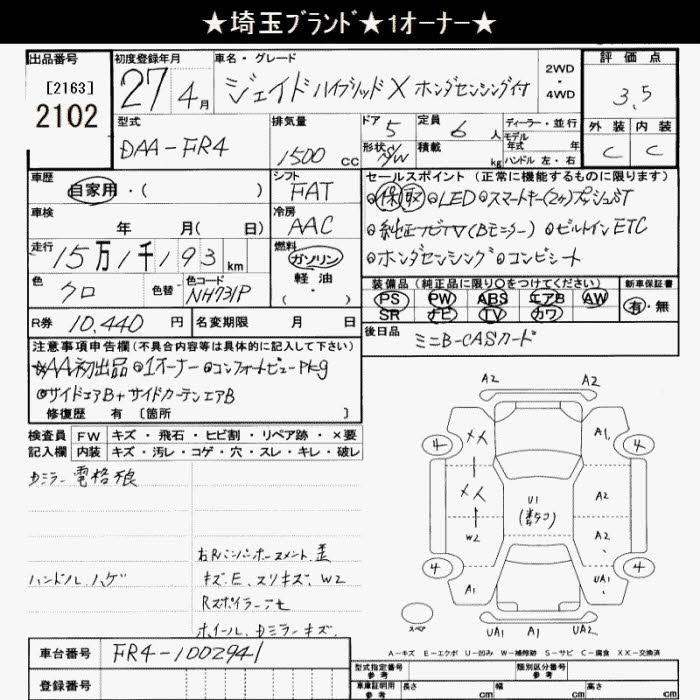 ★埼玉ﾌﾞﾗﾝﾄﾞ★1オーナー★
出品番号 初度登録年月 車名・グレード 評価点
[2163]
2102
27年 4月 ジェイド ハイブリッド X ホンダセンシング付 2WD・4WD 3.5
型式 排気量 ドア 定員 ディーラー・並行 外装 内装
DAA-FR4 1500cc 5 6人 モデル年式 年
形状 積載 kg ハンドル 左・右 C C
車歴 シフト セールスポイント (正常に機能するものに限ります)
自家用・( ) FAT 保 取 LED スマートキー(2ヶ)プッシュST
車検 冷房
年 月( 日) AAC 純正ナビTV(Bモニター) ビルトインETC
走行 燃料
15万1千193km ガソリン ホンダセンシング コンビシート
軽油
色 色替 色コード ・( )
クロ NH731P
装備品 (純正品に限り○をつけてください) 新車保証書
PS PW ABS エアB AW 有・無
SR ナビ TV カワ
R券 10,440円 名変期限 月 日
後日品 ミニB-CASカード
注意事項申告欄(不具合内容等は具体的に記入して下さい)
AA初出品 1オーナー コンフォートビューPkg
サイドエアB+サイドカーテンエアB
修復歴 有 〔箇所 〕
検査員 FW キズ・飛石・ヒビ割・リペア跡・×要
記入欄 内装 キズ・汚レ・コゲ・穴・スレ・キレ・破レ
ハンドル ハゲ
キズ、E、スリキズ、W2
Rスポイラー
ホイール、Dミラーキズ
A2 A2
4 A1 4
U1 A2
W2 A2
4 A1 UA1 4
スペア UA1 A1 UA2
A－キズ E－エクボ U－凹み W－補修跡 S－サビ C－腐食 XX－交換済
車台番号 FR4-1002941
登録番号
型式指定番号 参考 類別区分番号 参考
車庫証明用 参考 長さ cm 幅 cm 高さ cm